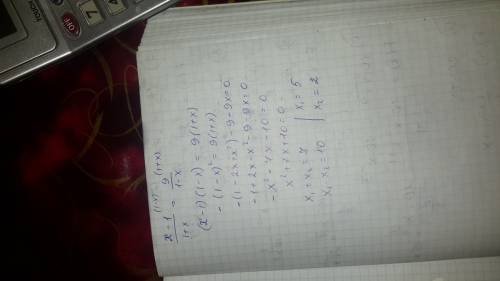 (x-1)^{(1-x)}/(1+x) = 9^{(1+x)}/(1-x)
(x-1)(1-x) = 9(1+x)
-(1-x)² = 9(1+x)
-(1-2x+x²)-9-9x=0
-1+2x-x²-9-9x=0
-x²-7x-10=0
x²+7x+10=0
x₁+x₂=7 | x₁=5
x₁·x₂=10 | x₂=2
OFF
7